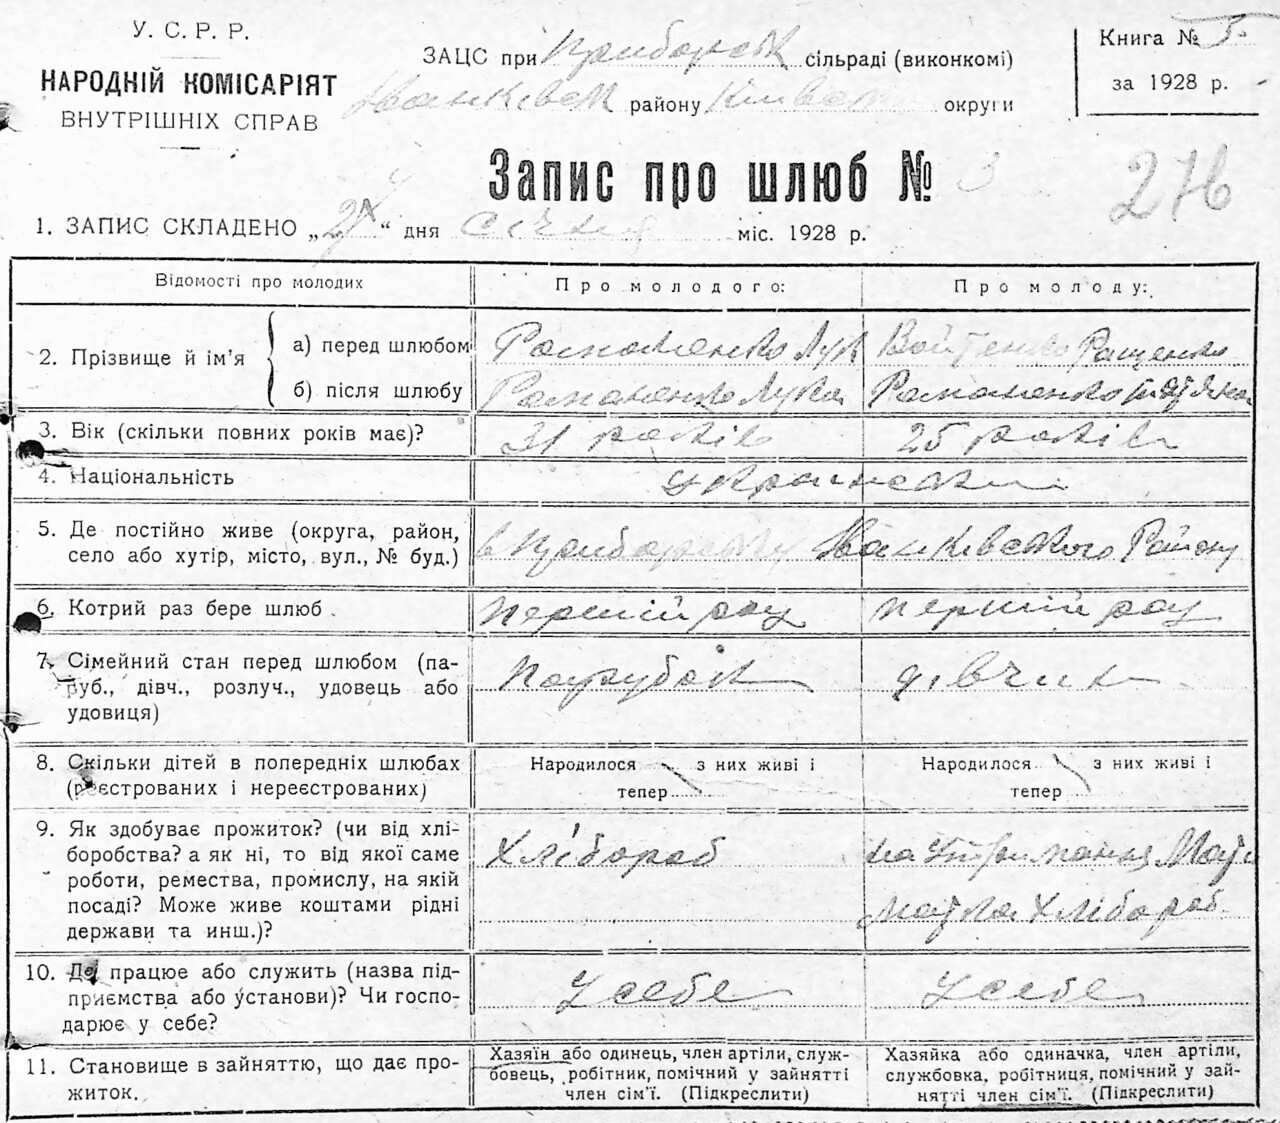 У. С. Р. Р.
НАРОДНІЙ КОМІСАРІЯТ
ВНУТРІШНІХ СПРАВ
ЗАЦС при Приборськ сільраді (виконкомі)
Іванківськ району Київськ округи
Книга №
за 1928 р.
Запис про шлюб № 3
276
1. ЗАПИС СКЛАДЕНО „ “ дня січня міс. 1928 р.
Відомості про молодих Про молодого: Про молоду:
2. Прізвище й ім’я
а) перед шлюбом Романенко Лук Войтенко Ращенко
б) після шлюбу Романенко Лука Романенко Тетяна
3. Вік (скільки повних років має)? 31 років 25 років
4. Національність українські
5. Де постійно живе (округа, район,
село або хутір, місто, вул., № буд.)
в Приборську Іванківського Району
6. Котрий раз бере шлюб перший раз перший раз
7. Сімейний стан перед шлюбом (па-
руб., дівч., розлуч., удовець або
удовиця)
парубок дівчин
8. Скільки дітей в попередніх шлюбах
(реєстрованих і нереєстрованих)
Народилося з них живі і
тепер
Народилося з них живі і
тепер
9. Як здобуває прожиток? (чи від хлі-
боробства? а як ні, то від якої саме
роботи, ремества, промислу, на якій
посаді? Може живе коштами рідні
держави та инш.)?
Хлібороб
на утримання Мат
Матка Хлібороб
10. Де працює або служить (назва під-
приємства або установи)? Чи госпо-
дарює у себе?
У себе У себе
11. Становище в зайняттю, що дає про-
житок.
Хазяїн або одинець, член артіли, служ-
бовець, робітник, помічний у зайнятті
член сім’ї. (Підкреслити)
Хазяйка або одиначка, член артіли,
службовка, робітниця, помічний у зай-
нятті член сім’ї. (Підкреслити)